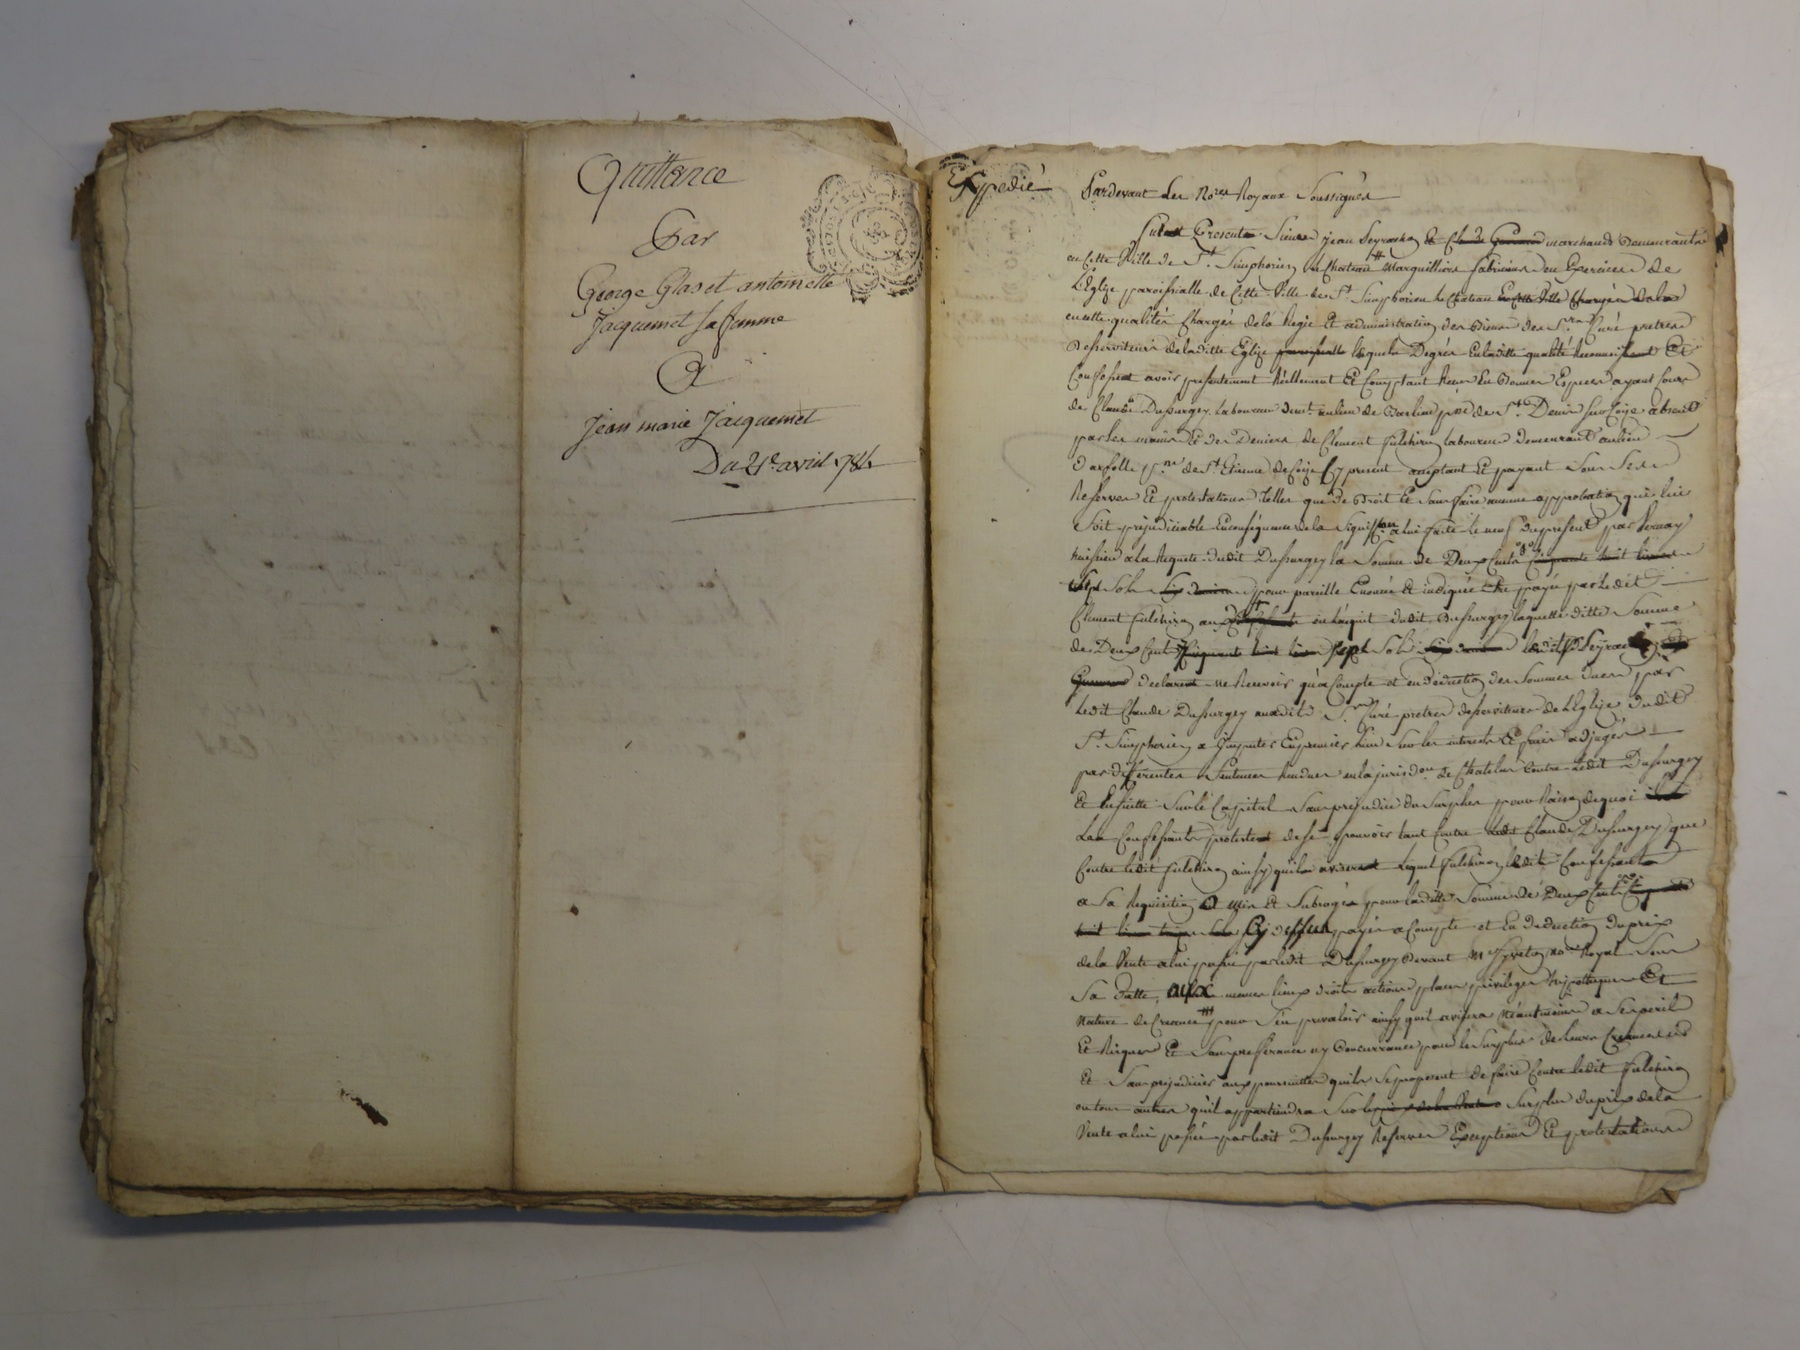 Quittance
Par
George Glas et antoinette
Jacquemet sa femme
A
Jean marie Jacquemet
Du 21e avril 784
Expedié
Pardevant Les No.res Royaux Soussignés
Sieur Jean Seyra marchand Demeurants
en Cette Ville de St. Simphorien le Chateau Marguilliers fabriciens en Exercice de
L'Eglize paroissialle de Cette Ville de St. Simphorien le Chateau
en cette qualité Chargés de la Regie Et administration des Biens des Srs Curé pretres
Desserviteurs de laditte Eglize Lequels Degrés En laditte qualité Reconnoissent Et
Confessent avoir presentement Réellement Et Comptant Receu En Bonnes Especes ayant Cours
de Claude Dussurgey laboureur demt. au lieu de psse de St. Denis sur Coize absent
par les mains Et des Deniers de Clement fulchiron laboureur demeurant au lieu
psse de St. Etienne de Coize Cy present acceptant Et payant Sous Ses
Reserves Et protestations Telles que de Droit Et Sans faire aucune approbation qui lui
Soit prejudiciable En consequence de la Signiff.on a lui faite le neuf du present par
huissier a la Requete dudit Dussurgey la Somme de Deux Cents
Sols pour pareille Enoncée Et indiquée Etre payée par Ledit
Clement fulchiron en l'acquit dudit Dussurgey laquelle ditte Somme
de Deux Cent sept Sols ledit Sr Seyra
declarent ne Recevoir qu'a Compte et en Deduction des Sommes dues par
Ledit Claude Dussurgey auxdits Srs Curé pretres desserviteurs de L'Eglize dudit
St. Simphorien a Imputer En premier lieu Sur les interets Et frais adjugés
par differentes Sentences Rendues en la jurisd.on de Chatelus Contre Ledit Dussurgey
Et Ensuitte Sur le Capital Sans prejudice du Surplus pour Raison de quoi
Les Confessants protestent de se pourvoir tant Contre Claude Dussurgey que
Contre ledit fulchiron ainsy qu'ils aviseront Lequel fulchiron Confessants
a Sa Requisition mis Et Subrogés pour laditte Somme de Deux Cents
Cy dessus payée a Compte et En Deduction du prix
de la Vente a lui passée par ledit Dussurgey Devant Me Royal Sous
Sa Datte, aux memes lieux droits actions places privileges hipotheques Et
Nature de Creance pour S'en prevaloir ainsy qu'il avisera Néantmoins a Ses peril
Et Risques Et Sans prefference ny Concurrance pour le Surplus de leurs Creances
Et Sans prejudicier aux poursuittes qu'ils Se proposent de faire Contre ledit fulchiron
ou tous autres qu'il appartiendra Sur le Surplus du prix de la
Vente a lui passée par ledit Dussurgey Reserves Exceptions Et protestations